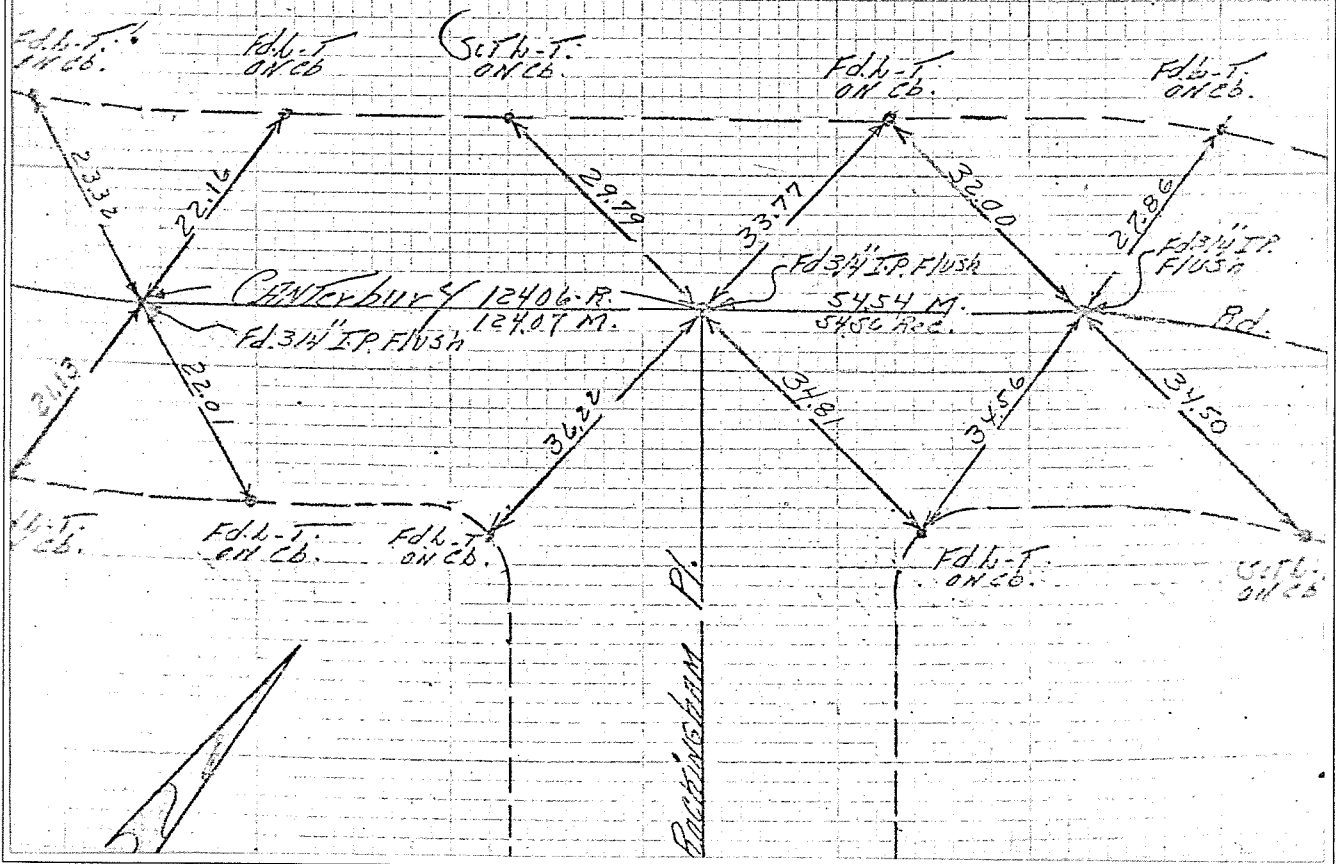 Fd.L-T.
ON Cb.
Fd.L-T
ON Cb
Set L-T.
ON Cb.
Fd.L-T.
ON Cb.
Fd.L-T.
ON Cb.
23.32
22.16
29.79
33.77
32.00
27.86
Fd 3/4" I.P. Flush
Fd 3/4" I.P.
Flush
Canterbury
Rd.
124.06-R.
124.07 M.
54.54 M.
54.56 Rec.
Fd. 3/4" I.P. Flush
21.13
22.01
36.22
34.81
34.56
34.50
L-T.
Cb.
Fd.L-T.
ON Cb.
Fd.L-T
ON Cb.
Fd.L-T.
ON Cb.
Set L-
ON Cb
Rockingham Pl.